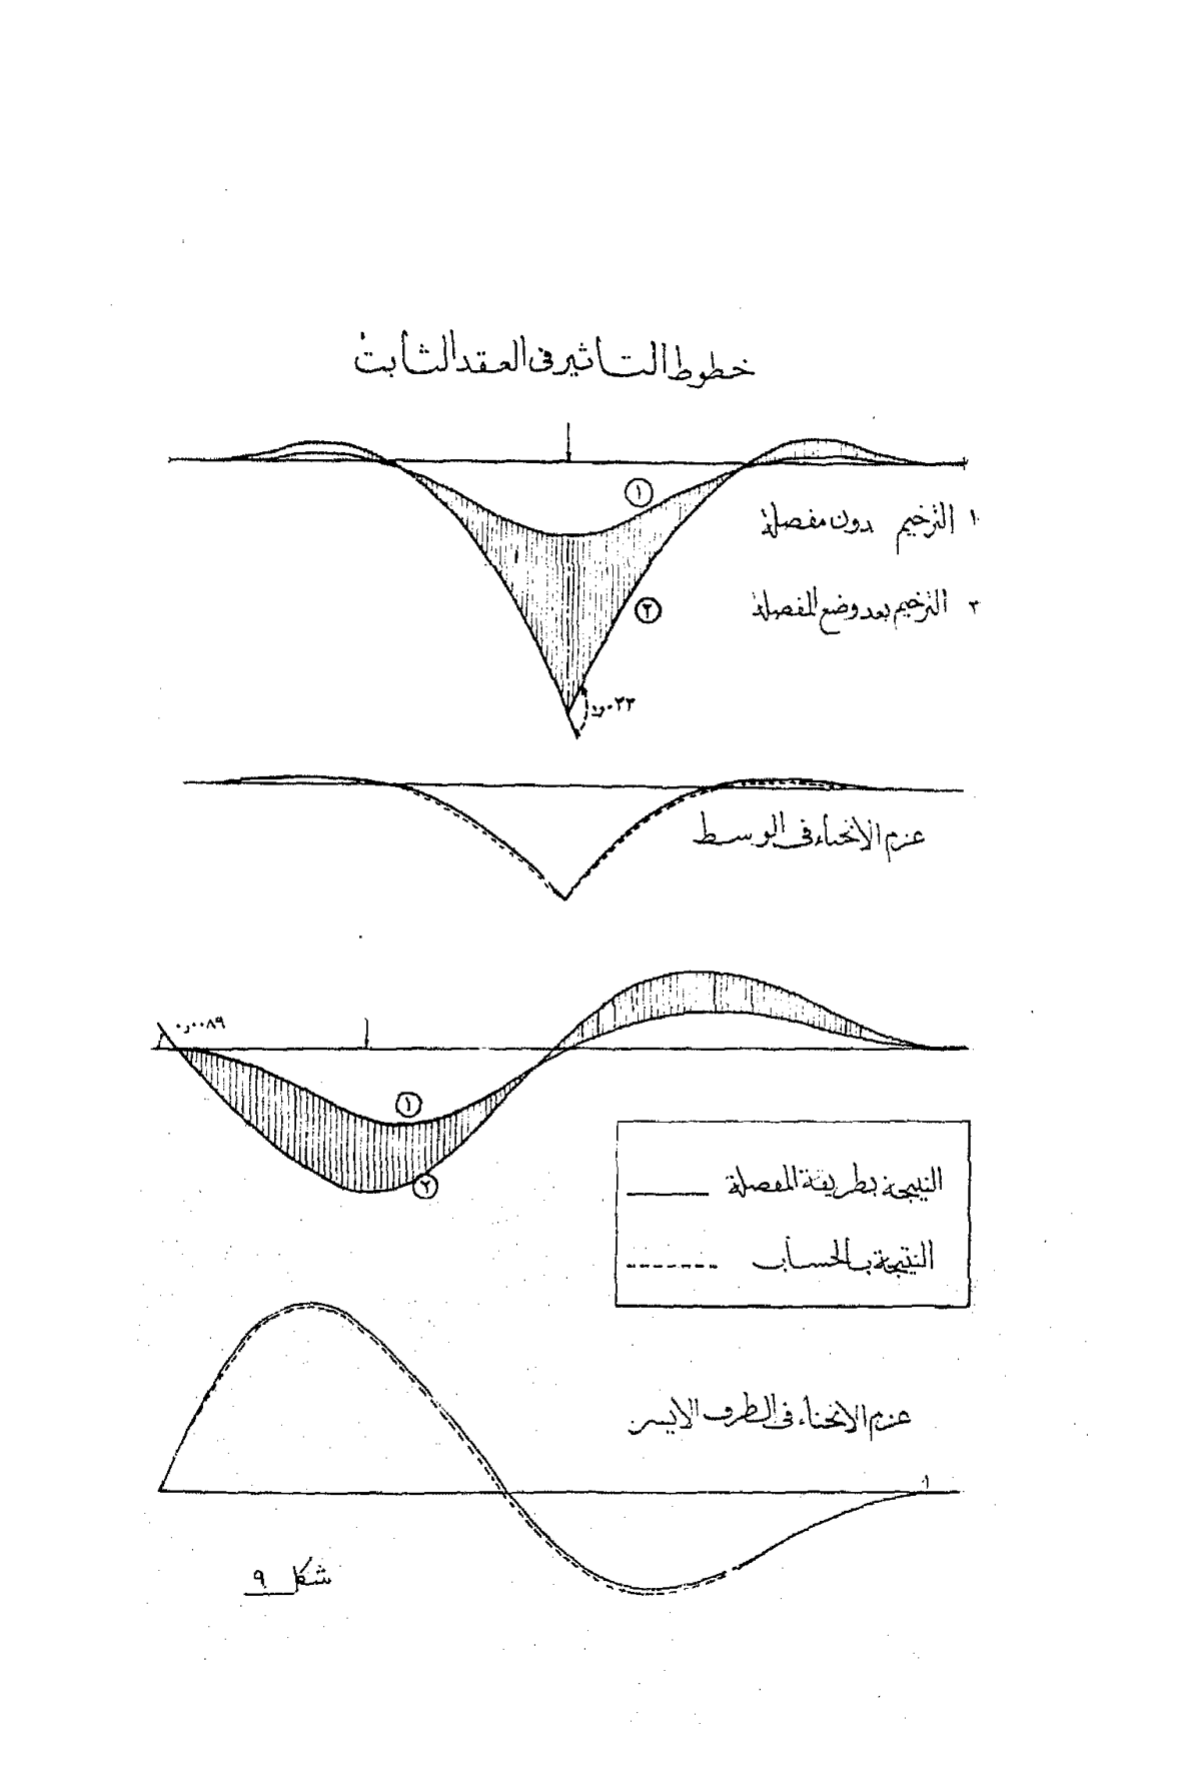 خطوط التأثير في العقد الثابت
١
١ الترخيم دون مفصلة
٢
٢ الترخيم بعد وضع المفصلة
٠٫٠٣٣
عزم الانحناء في الوسط
٠٫٠٠٨٩
١
٢
النتيجة بطريقة المفصلة
النتيجة بالحساب
عزم الانحناء في الطرف الايسر
شكل ٩